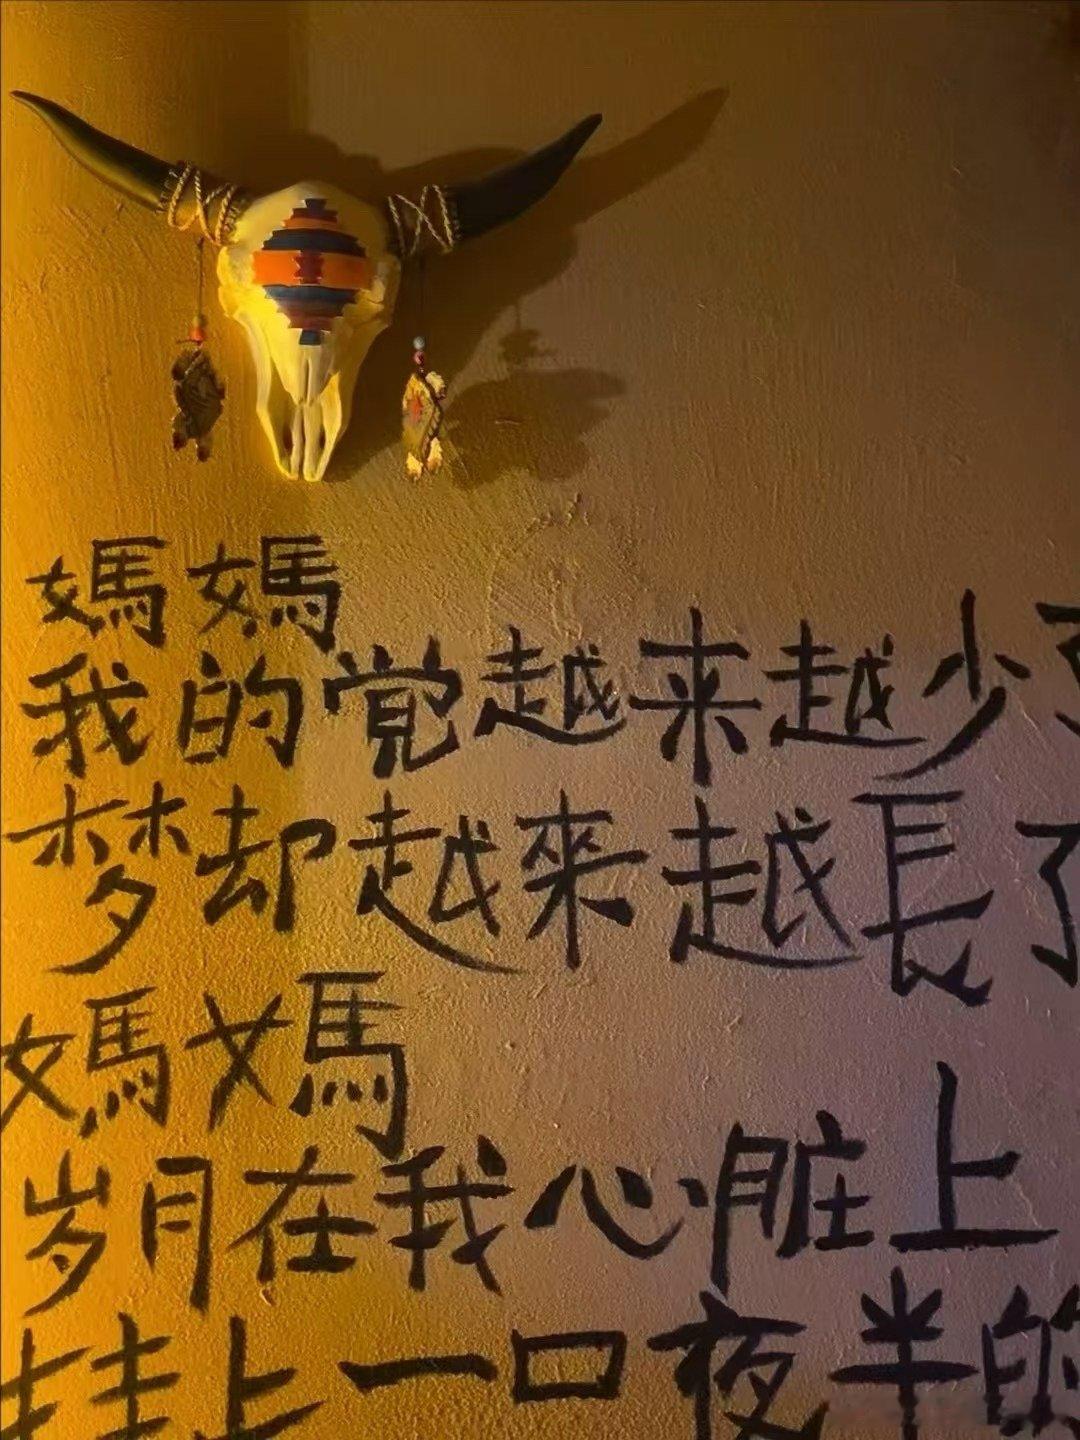 媽媽
我的覚越来越少了
梦却越來越長了
媽媽
岁月在我心脏上
挂上一口夜半的